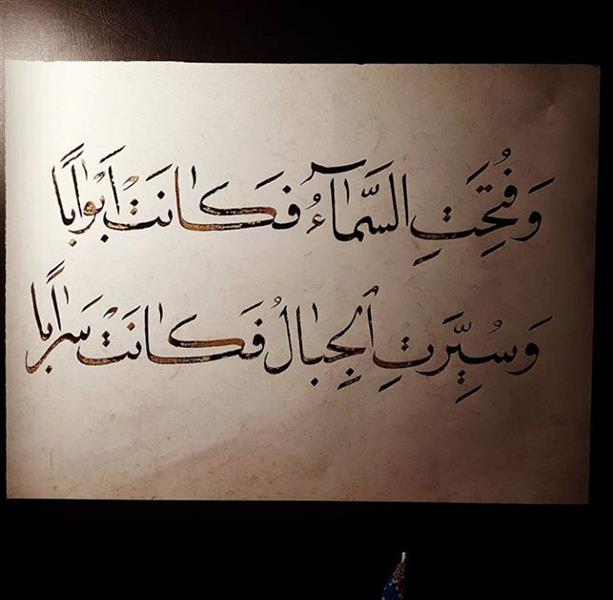 وَفُتِحَتِ السَّمَآءُ فَكَانَتْ أَبْوَابًا
وَسُيِّرَتِ الْجِبَالُ فَكَانَتْ سَرَابًا